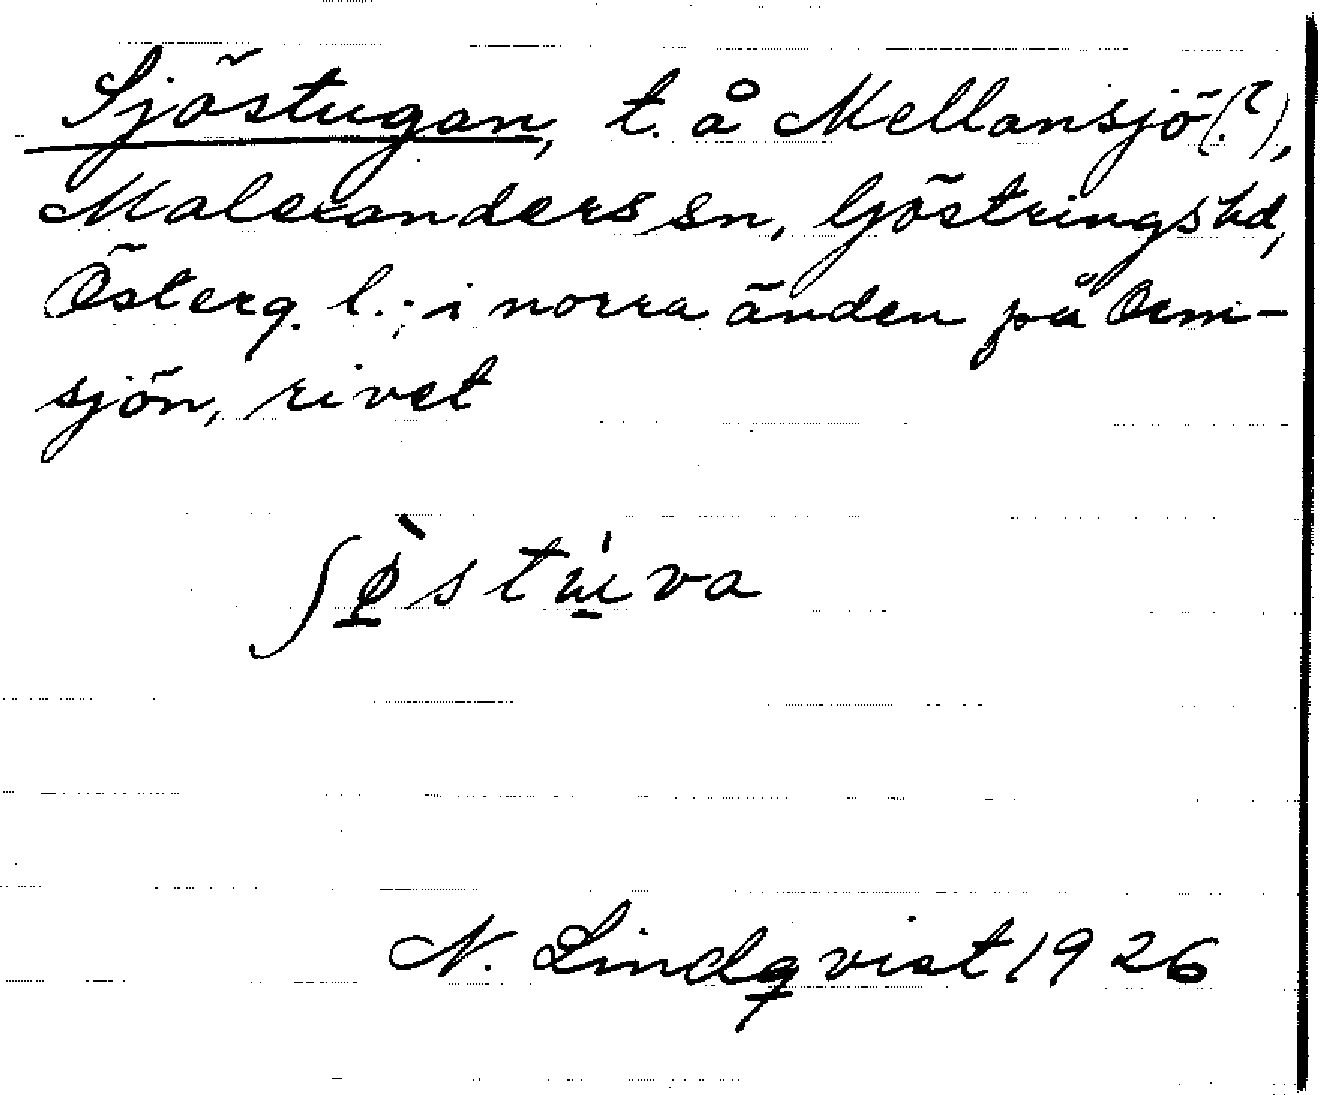 Sjöstugan, t. å Mellansjö(?),
Malexanders sn, Göstrings hd,
Österg. l.; i norra änden på Äm-
sjön, rivet
ʃø̀stu̍va
N. Lindqvist 1926